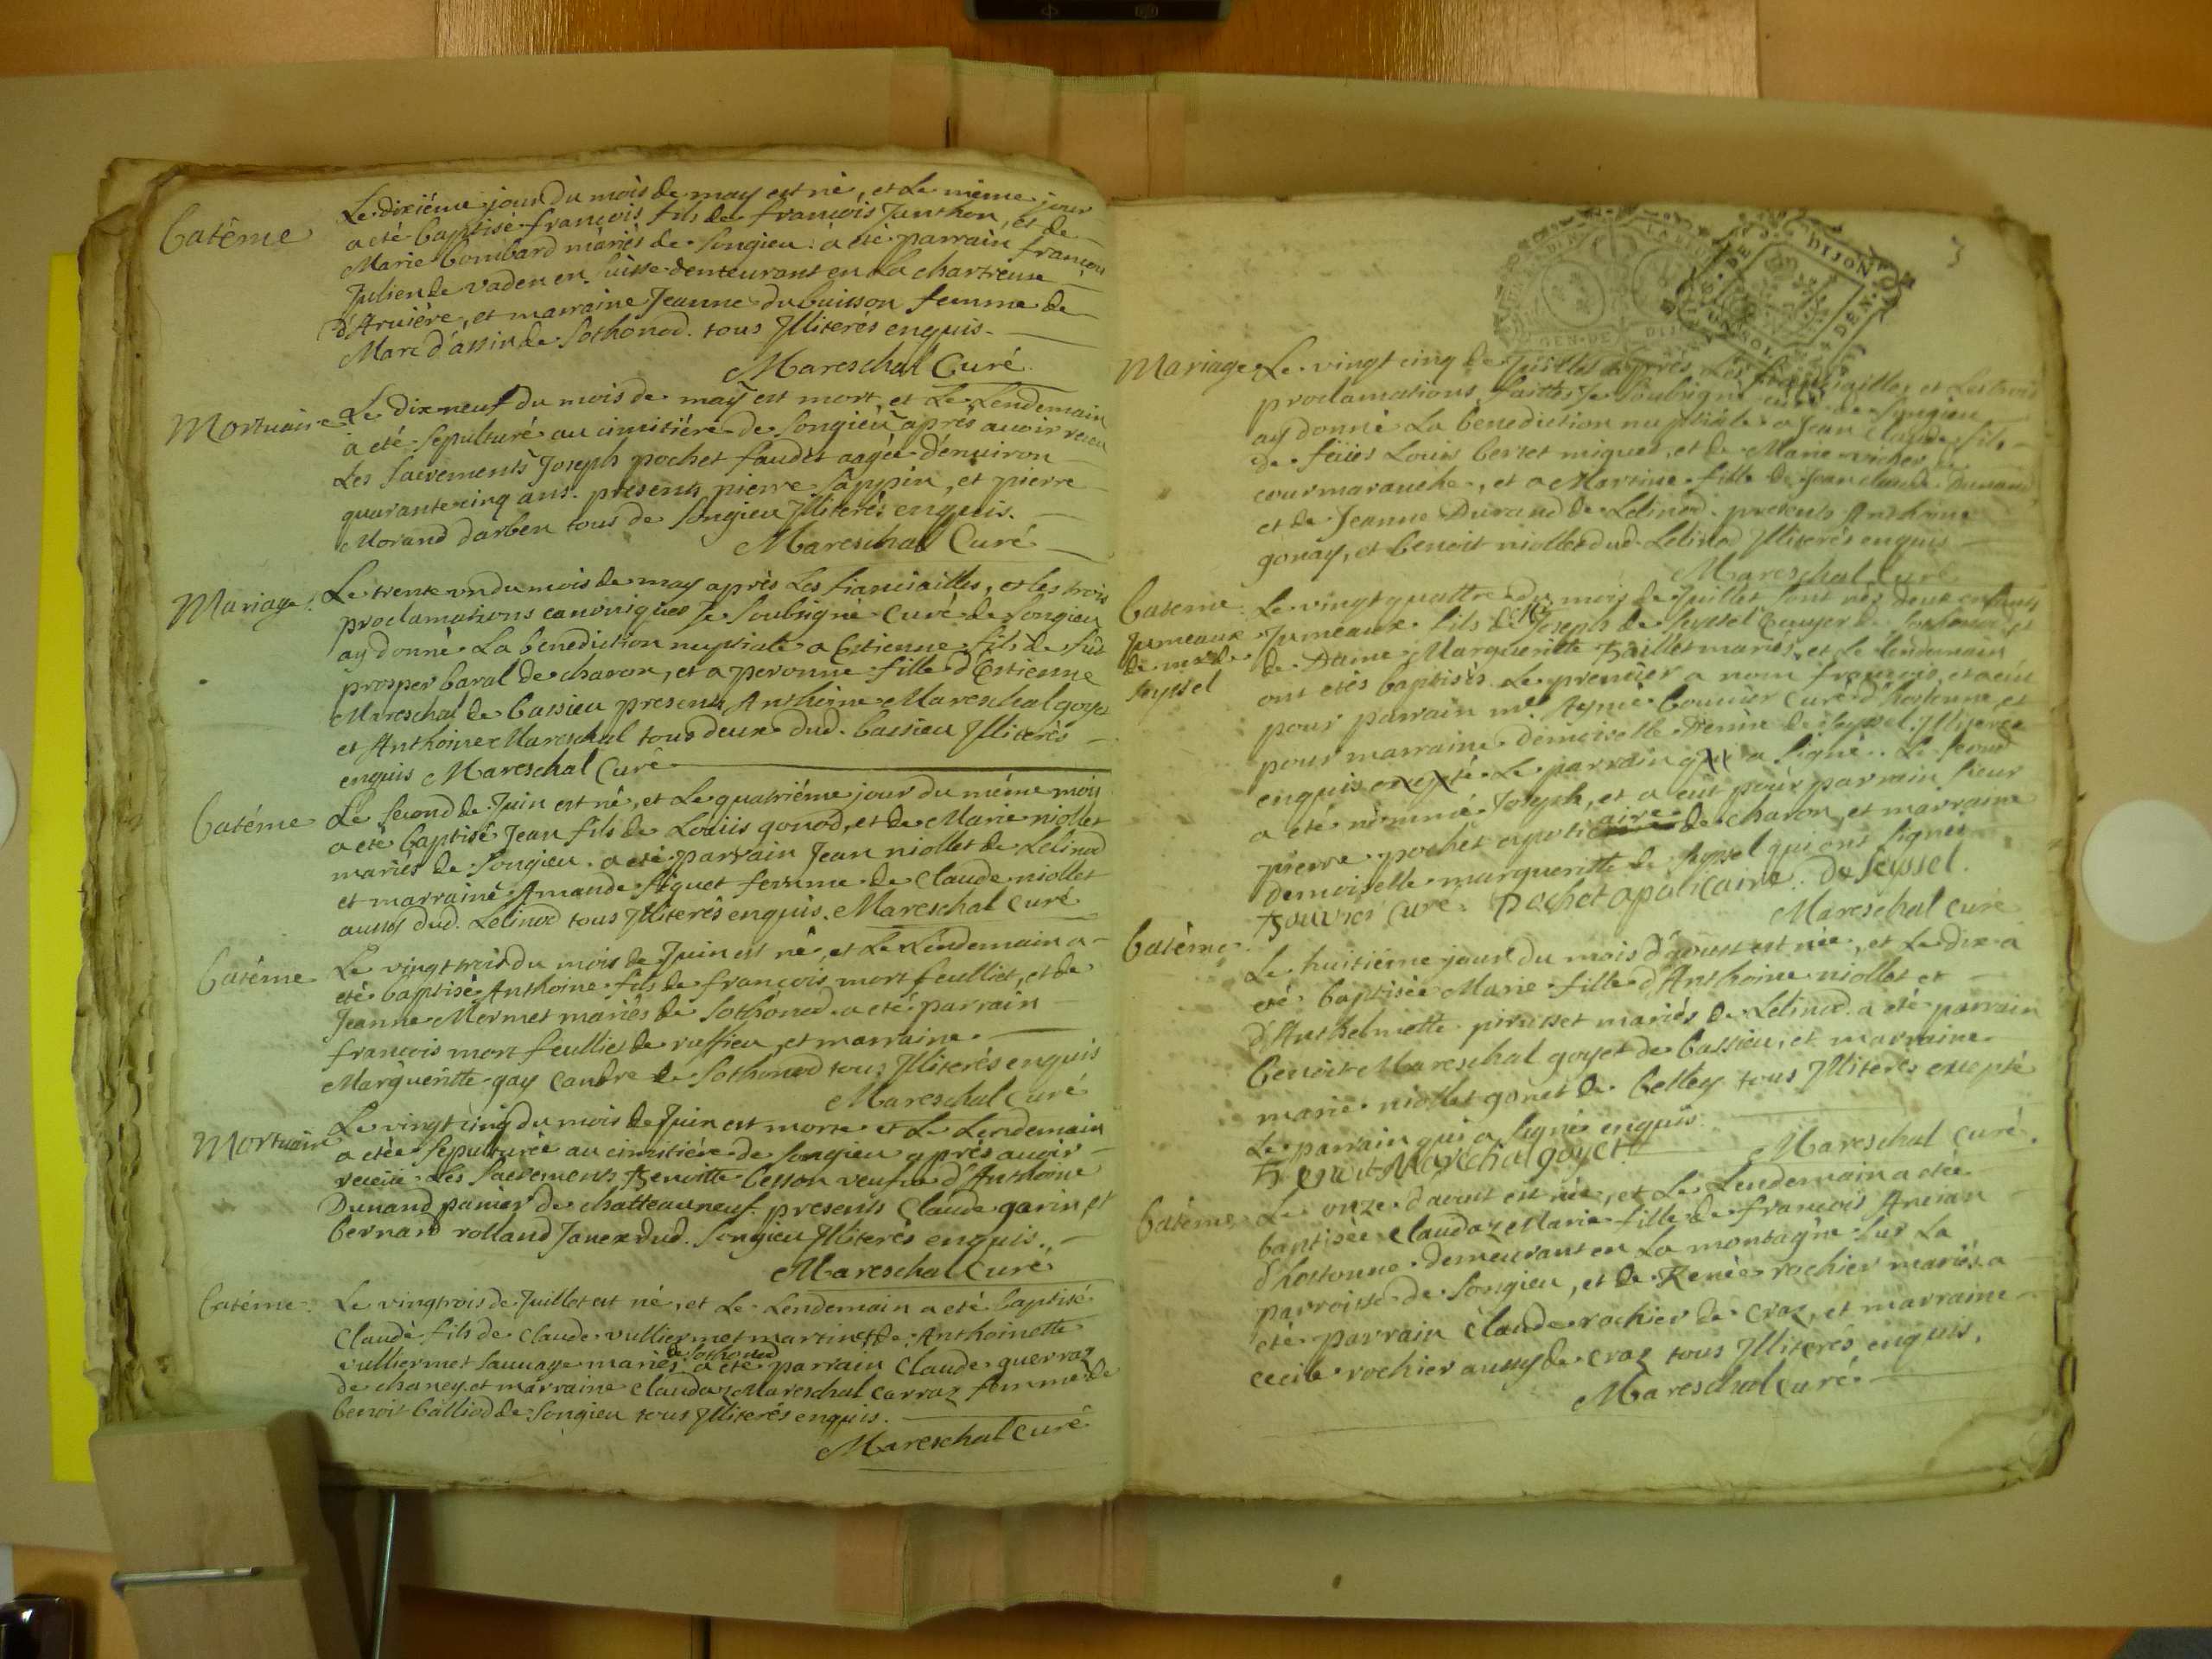 Batême
Le dixiéme jour du mois de may est né, et Le même jour
a eté baptisé françois fils de françois Junthon, et de
Marie bombard mariés de Songieu. a eté parrain françois
Julien de vaden en Suisse demeurant en La chartreuse
d'Arviére, et marraine Jeanne dubuisson femme de
Marc d'assin de Sothonod. tous Jlliterés enquis.
Mareschal Curé
Mortuaire
Le dixneuf du mois de may est mort, et Le Lendemain
a eté sepulturé au cimitiére de Songieu aprés auoir receu
Les Sacrements Joseph pochet faudet aagée d'enuiron
quarantecinq ans. presents pierre Sappin, et pierre
Morand darben tous de Songieu Jlliterés enquis.
Mareschal Curé
Mariage.
Le trente vn du mois de may aprés Les fiançailles, et les trois
proclamations canoniques Je Soubsigné Curé de Songieu
ay donné La benediction nuptiale a Estienne fils de fût
prosper baral de charon, et a peronne fille d'Estienne
Mareschal de bassieu presents Anthoine Mareschal goyet
et Anthoine Mareschal tous deux dud. bassieu Jlliterés
enquis Mareschal Curé
Batéme
Le second de Juin est né, et Le quatriéme jour du même mois
a eté baptisé Jean fils de Loüis gonod, et de Marie niollet
mariés de Songieu. a eté parrain Jean niollet de Lelinod
et marraine Amande figuet femme de Claude niollet
aussy dud. Lelinod tous Jlliterés enquis. Mareschal Curé
Batéme
Le vingt trois du mois de Juin est né, et Le Lendemain a
eté baptisé Anthoine fils de françois mort feulliet, et de
Jeanne Mermet mariés de Sothonod. a eté parrain
françois mort feulliet de ruffieu, et marraine
Margueritte gay Candre de Sothonod tous Jlliterés enquis
Mareschal Curé
Mortuaire
Le vingt cinq du mois de Juin est morte et Le Lendemain
a etée sepulturée au cimitiére de Songieu aprés auoir
receüe Les Sacrements Benoitte besson veufue d'Anthoine
Dunand panier de chatteauneuf. presents Claude garin, et
bernard rolland Janex dud. Songieu Jlliterés enquis.
Mareschal Curé
Batéme.
Le vingtrois de Juillet est né, et Le Lendemain a eté baptisé
Claude fils de Claude vulliermet martin et de Anthoinette
vulliermet Sauuage mariés de Sothonod a eté parrain Claude guerraz
de chaney. et marraine Claudaz Mareschal Carraz femme de
benoit balliod de Songieu tous Jlliterés enquis.
Mareschal Curé
3
DIJON
Mariage
Le vingt cinq de Juillet aprés Les fiançailles et Les trois
proclamations faittes Je Soubsigné curé de Songieu
ay donné La benediction nuptiale a Jean Claude fils
de feües Loüis bertet miguet, et de Marie
courmarauche, et a Martine fille de Jean claude Dunand
et de Jeanne Durand de Lelinod. presents Anthoine
gonay, et benoit niollet dud. Lelinod Jlliterés enquis
Mareschal Curé
Bateme
Jumeaux
de mr de
seyssel
Le vingt quattre du mois de Juillet sont nés deux enfants
Jumeaux fils de Mr Joseph de Seyssel Ecuyer de Sothonod et
de Dame Margueritte Baillet mariés, et Le Lendemain
ont etés baptisés. Le premier a nom françois, et a eüt
pour parrain mre Aymé bouuier Curé d'hostonne, et
pour marraine demoiselle Denise de Seyssel. Jlliterée
enquis excepté Le parrain qui a Signé. Le second
a eté nommé Joseph, et a eüt pour parrain Sieur
pierre pochet apoticaire de charon, et marraine
Demoiselle margueritte de Seyssel qui ont Signés
Bouvier curé. Pochet apoticaire. De Seyssel.
Mareschal curé
Batéme.
Le huitiéme jour du mois d'aoust est née, et Le dix a
eté baptisée Marie fille d'Anthoine niollet et
d'Anthelmette prousset mariés de Lelinod. a eté parrain
Benoit Mareschal goyet de bassieu, et marraine
marie niollet gonet de belley tous Jlliterés excepté
Le parrain qui a Signé enquis.
Benoit Marechal goyet
Mareschal Curé.
Batéme
Le onze d'aoust est née, et Le Lendemain a etée
baptisée Claudaz Marie fille de françois Ancian
d'hostonne demeurant en La montagne sur La
parroisse de Songieu, et de Renée rochier mariés. a
eté parrain Claude rochier de Craz, et marraine
cecile rochier aussy de craz tous Jlliterés enquis.
Mareschal Curé.